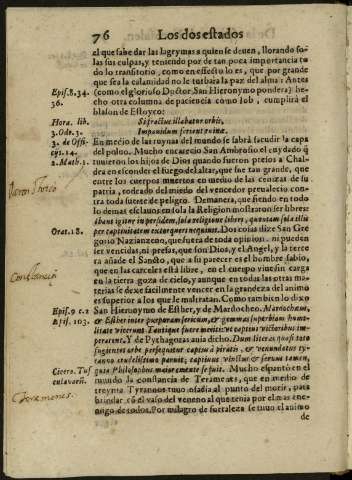 76 Los dos estados
el que sabe dar las lagrymas a quien se deven, llorando so-
las sus culpas, y teniendo por de tan poca importancia to
do lo transitorio, como en efecto lo es, que por grande
que sea la calamidad no le turba la paz del alma: Antes
Epis. 8. 34. (como el glorioso Doctor San Hieronymo pondera) he-
36. cho otra columna de paciencia como Iob, cumplirá el
blason de Estoyco:
Hora. lib. Si fractus illabatur orbis,
3. Ode. 3. Impavidum ferient ruinæ.
3. de Offi- En medio de las ruynas del mundo se sabrá sacudir la capa
cijs. 14. del polvo. Mucho encarecio San Ambrosio el cuydado q̃
2. Mach. 1. tuvieron los hijos de Dios quando fueron presos a Chal-
dea en esconder el fuego del altar, que fue tan grande, que
entre los cuerpos muertos en medio de las cenizas de su
Varon Heroico patria, rodeado del miedo del vencedor prevalecio contra
toda suerte de peligro. Demanera, que siendo en todo
lo demas esclavos, en sola la Religion mostravan ser libres:
per captivitatem extorqueri nequivit. Dos cosas dize San Gre
Orat. 18. gorio Nazianzeno, que fuera de toda opinion, ni pueden
ser vencidas, ni presas, que son Dios, y el Angel, y la terce
ra añade el Sancto, que a su parecer es el hombre sabio,
que en las carceles está libre, en el cuerpo vive sin carga
en la tierra goza de cielo, y aunque en todas las otras ma-
terias se dexe facilmente vencer en la grandeza del animo
es superior a los que le maltratan. Como tambien lo dixo
Epis. 9 c. 2 San Hieronymo de Esther, y de Mardocheo. Mardochæum,
Epist. 103. & Esther inter purpuram sericum, & gemmas superbiam humi-
litate vicerunt Tantique fuere meriti: ut captivi victoribus im-
perarent, Y de Pythagoras avia dicho. Dum literas quasi toto
fugientes orbe persequitur captus à piratis, & venundatus ty-
ranno crudelissimo paruit; captivus vinctus & servus tamen,
Cicero. Tus quia Philosophus maior emente se fuit. Mucho espantó en el
culavarũ. mundo la constancia de Teramenes, que en medio de
treynta Tyrannos tuvo osadia al punto del morir, para
brindar cõ el vaso del veneno al que tenia por el mas ene-
migo de todos. Por milagro de fortaleza se tuvo el animo
de